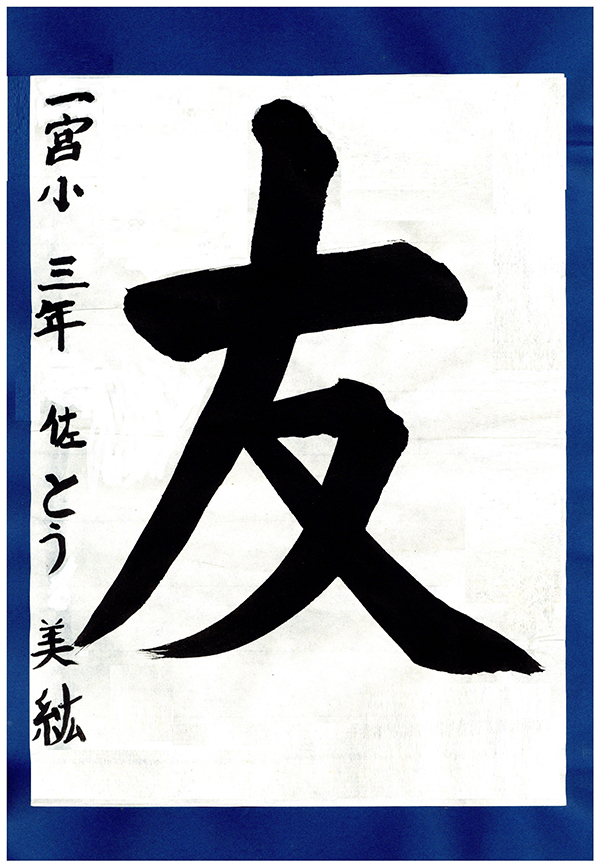 友
一宮小 三年 佐とう 美紘